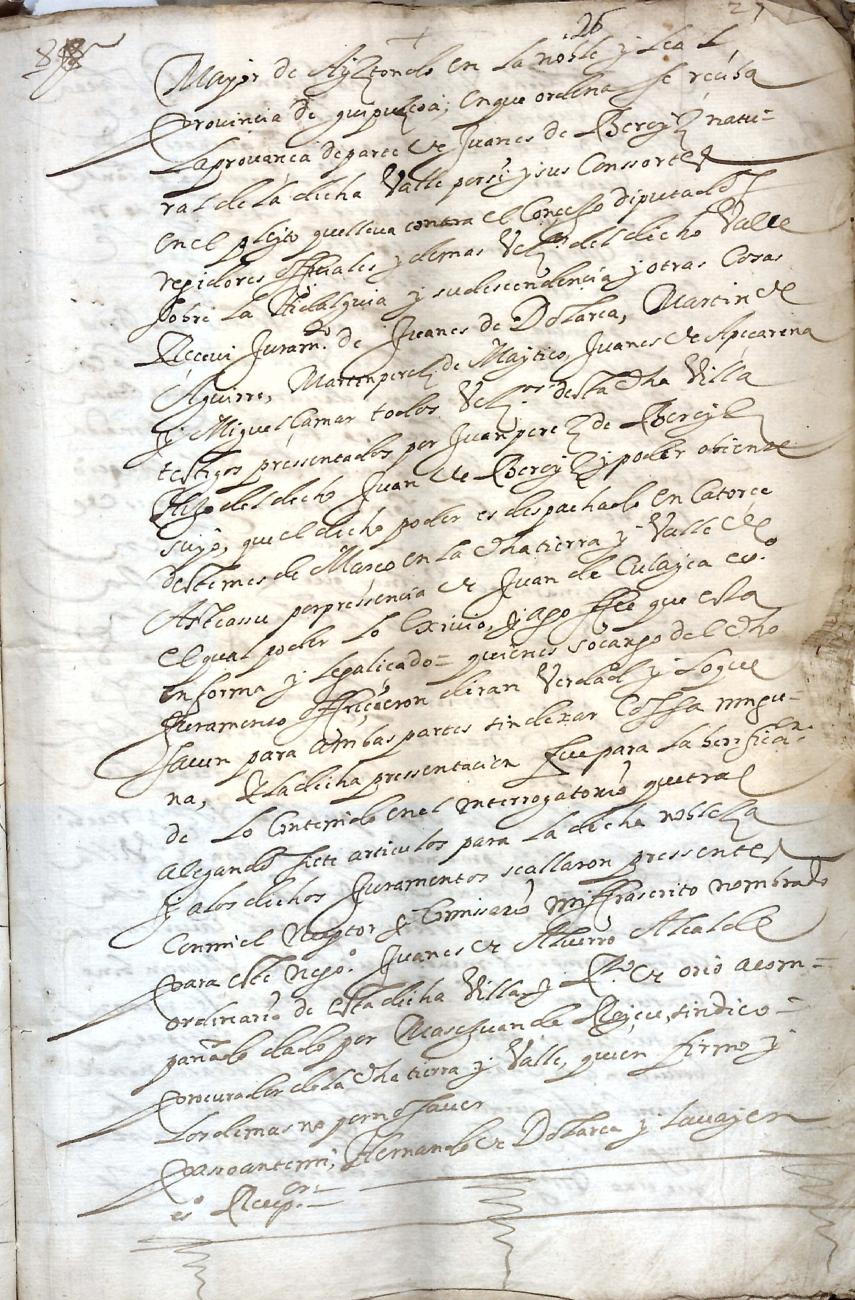 26 27
Mayor de Ayztondo en la noble y leal
Provincia de guipuzcoa, en que ordena se reciba
la provança de parte de Juanes de Berey natu=
ral de la dicha Valle por si y sus Conssortes
en el pleyto que lleva contra el Concejo diputados
regidores offiçiales y demas Vezos del dicho Valle
sobre la Hidalguia y su descendencia y otras Cosas
Recevi Juramto de Juanes de Dolarea, Martin de
Aguirre, Martin perez de Maytico, Juanes de
y Miguel Lamar todos Vezos desta dha Villa
testigos pressentados por Juan perez de Berey
Hijo del dicho Juan de Berey y poder obiente
suyo, que el dicho poder es despachado en Catorce
deste mes de Março en la dha tierra y Valle de
Asteasu por pressencia de Juan de Culayca esno
el qual poder lo exivio, y ago ffee que esta
en forma y legaliçado= quienes so cargo del dho
Juramento offreçieron diran Verdad y lo que
saven para ambas partes sin dexar Cossa ningu=
na, & la dicha pressentacion fue para la berificaon
de lo Contenido en el interrogatorio que trae
alegando siete articulos para la dicha nobleza
y a los dichos Juramentos se allaron pressentes
Conmi el Reçeptor & Comissario infrascrito nombrado
para este nego. Juanes de Alcalde
ordinario de esta dicha Villa y de orio acom=
pañado dado por Mase Juan de sindico=
Procurador de la dha tierra y Valle, quien firmo y
los demas no por no saver
Passo ante mi, Hernando de Dolarea y Lavayen
esno Recepor=